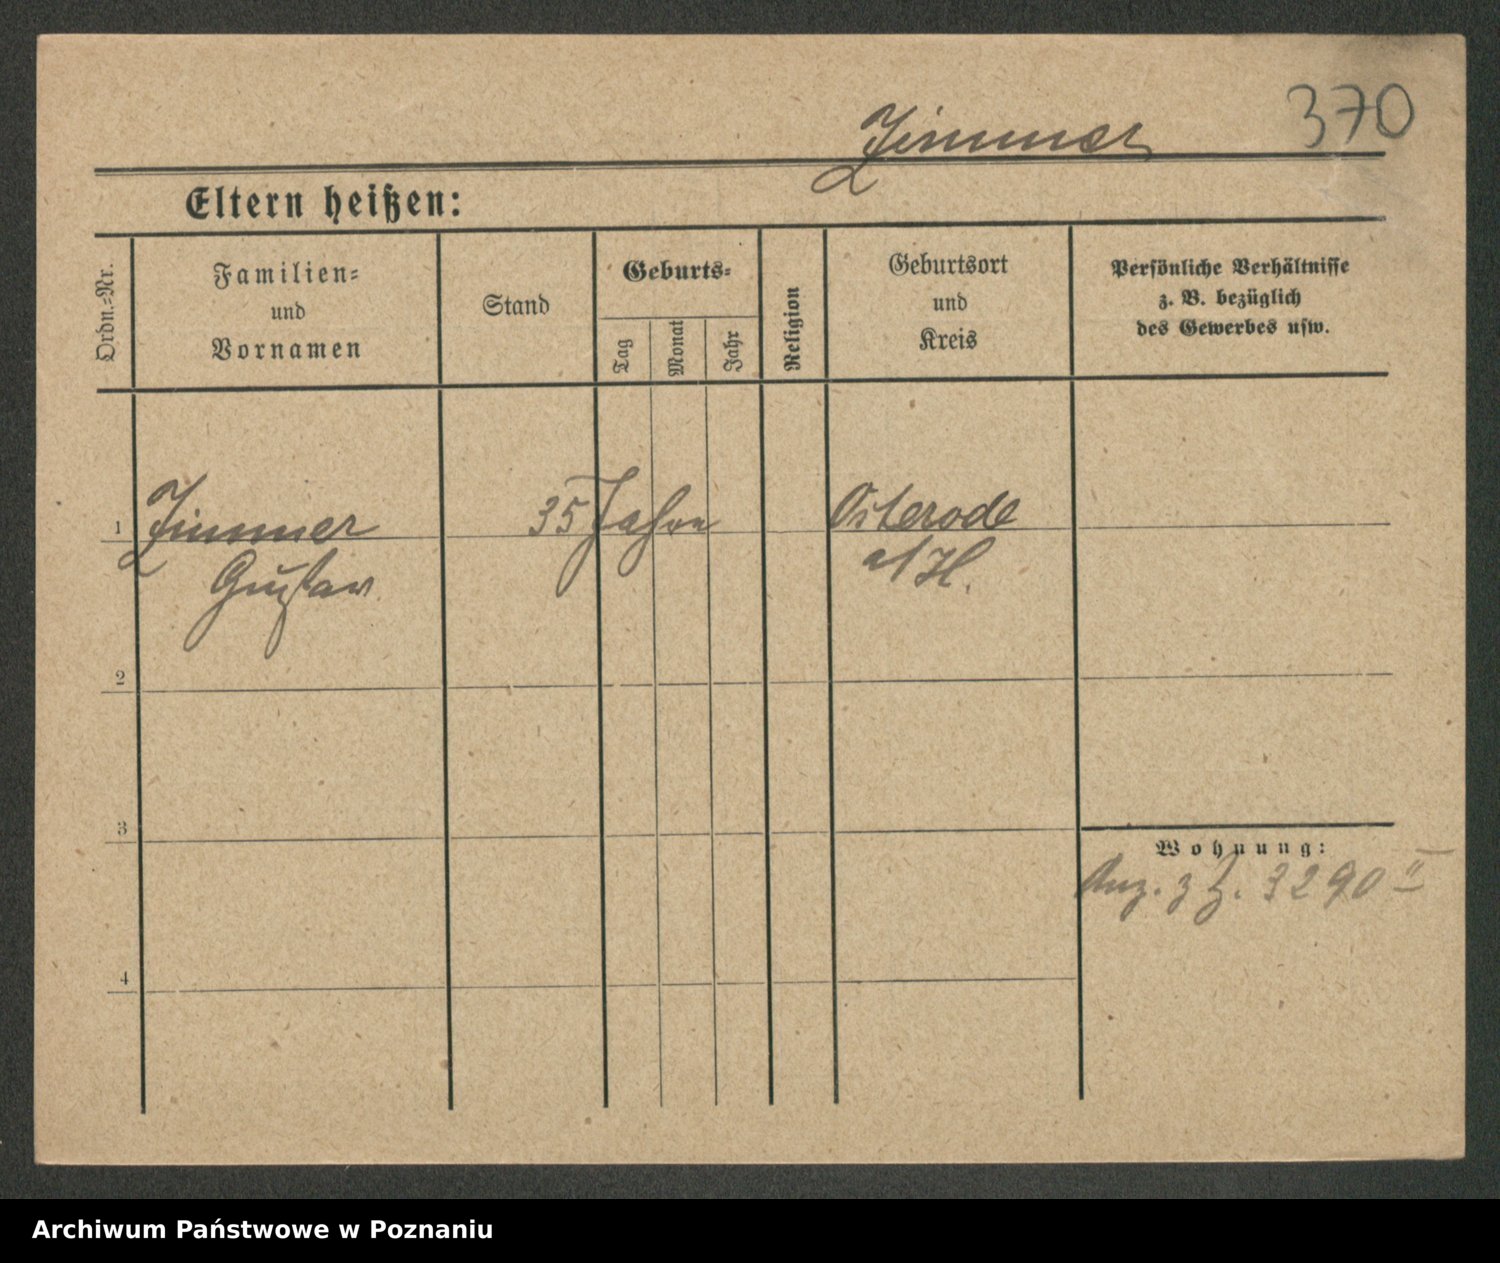 370
Zimmer
Eltern heißen:
Ordn.-Nr.
Familien-
und
Vornamen
Stand
Geburts-
Tag
Monat
Jahr
Religion
Geburtsort
und
Kreis
Persönliche Verhältnisse
z. B. bezüglich
des Gewerbes usw.
1
Zimmer
Gustav
35 Jahre
Osterode
a/H.
2
3
4
Wohnung:
3290 II
Archiwum Państwowe w Poznaniu